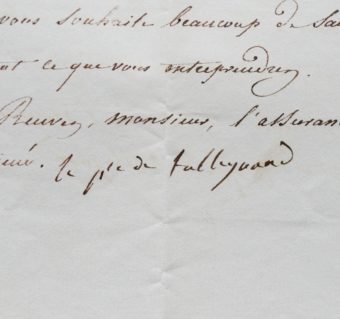 vous souhaite beaucoup de
ce que vous entreprendrez.
Recevez, monsieur, l'assuran
le p^ce de talleyrand